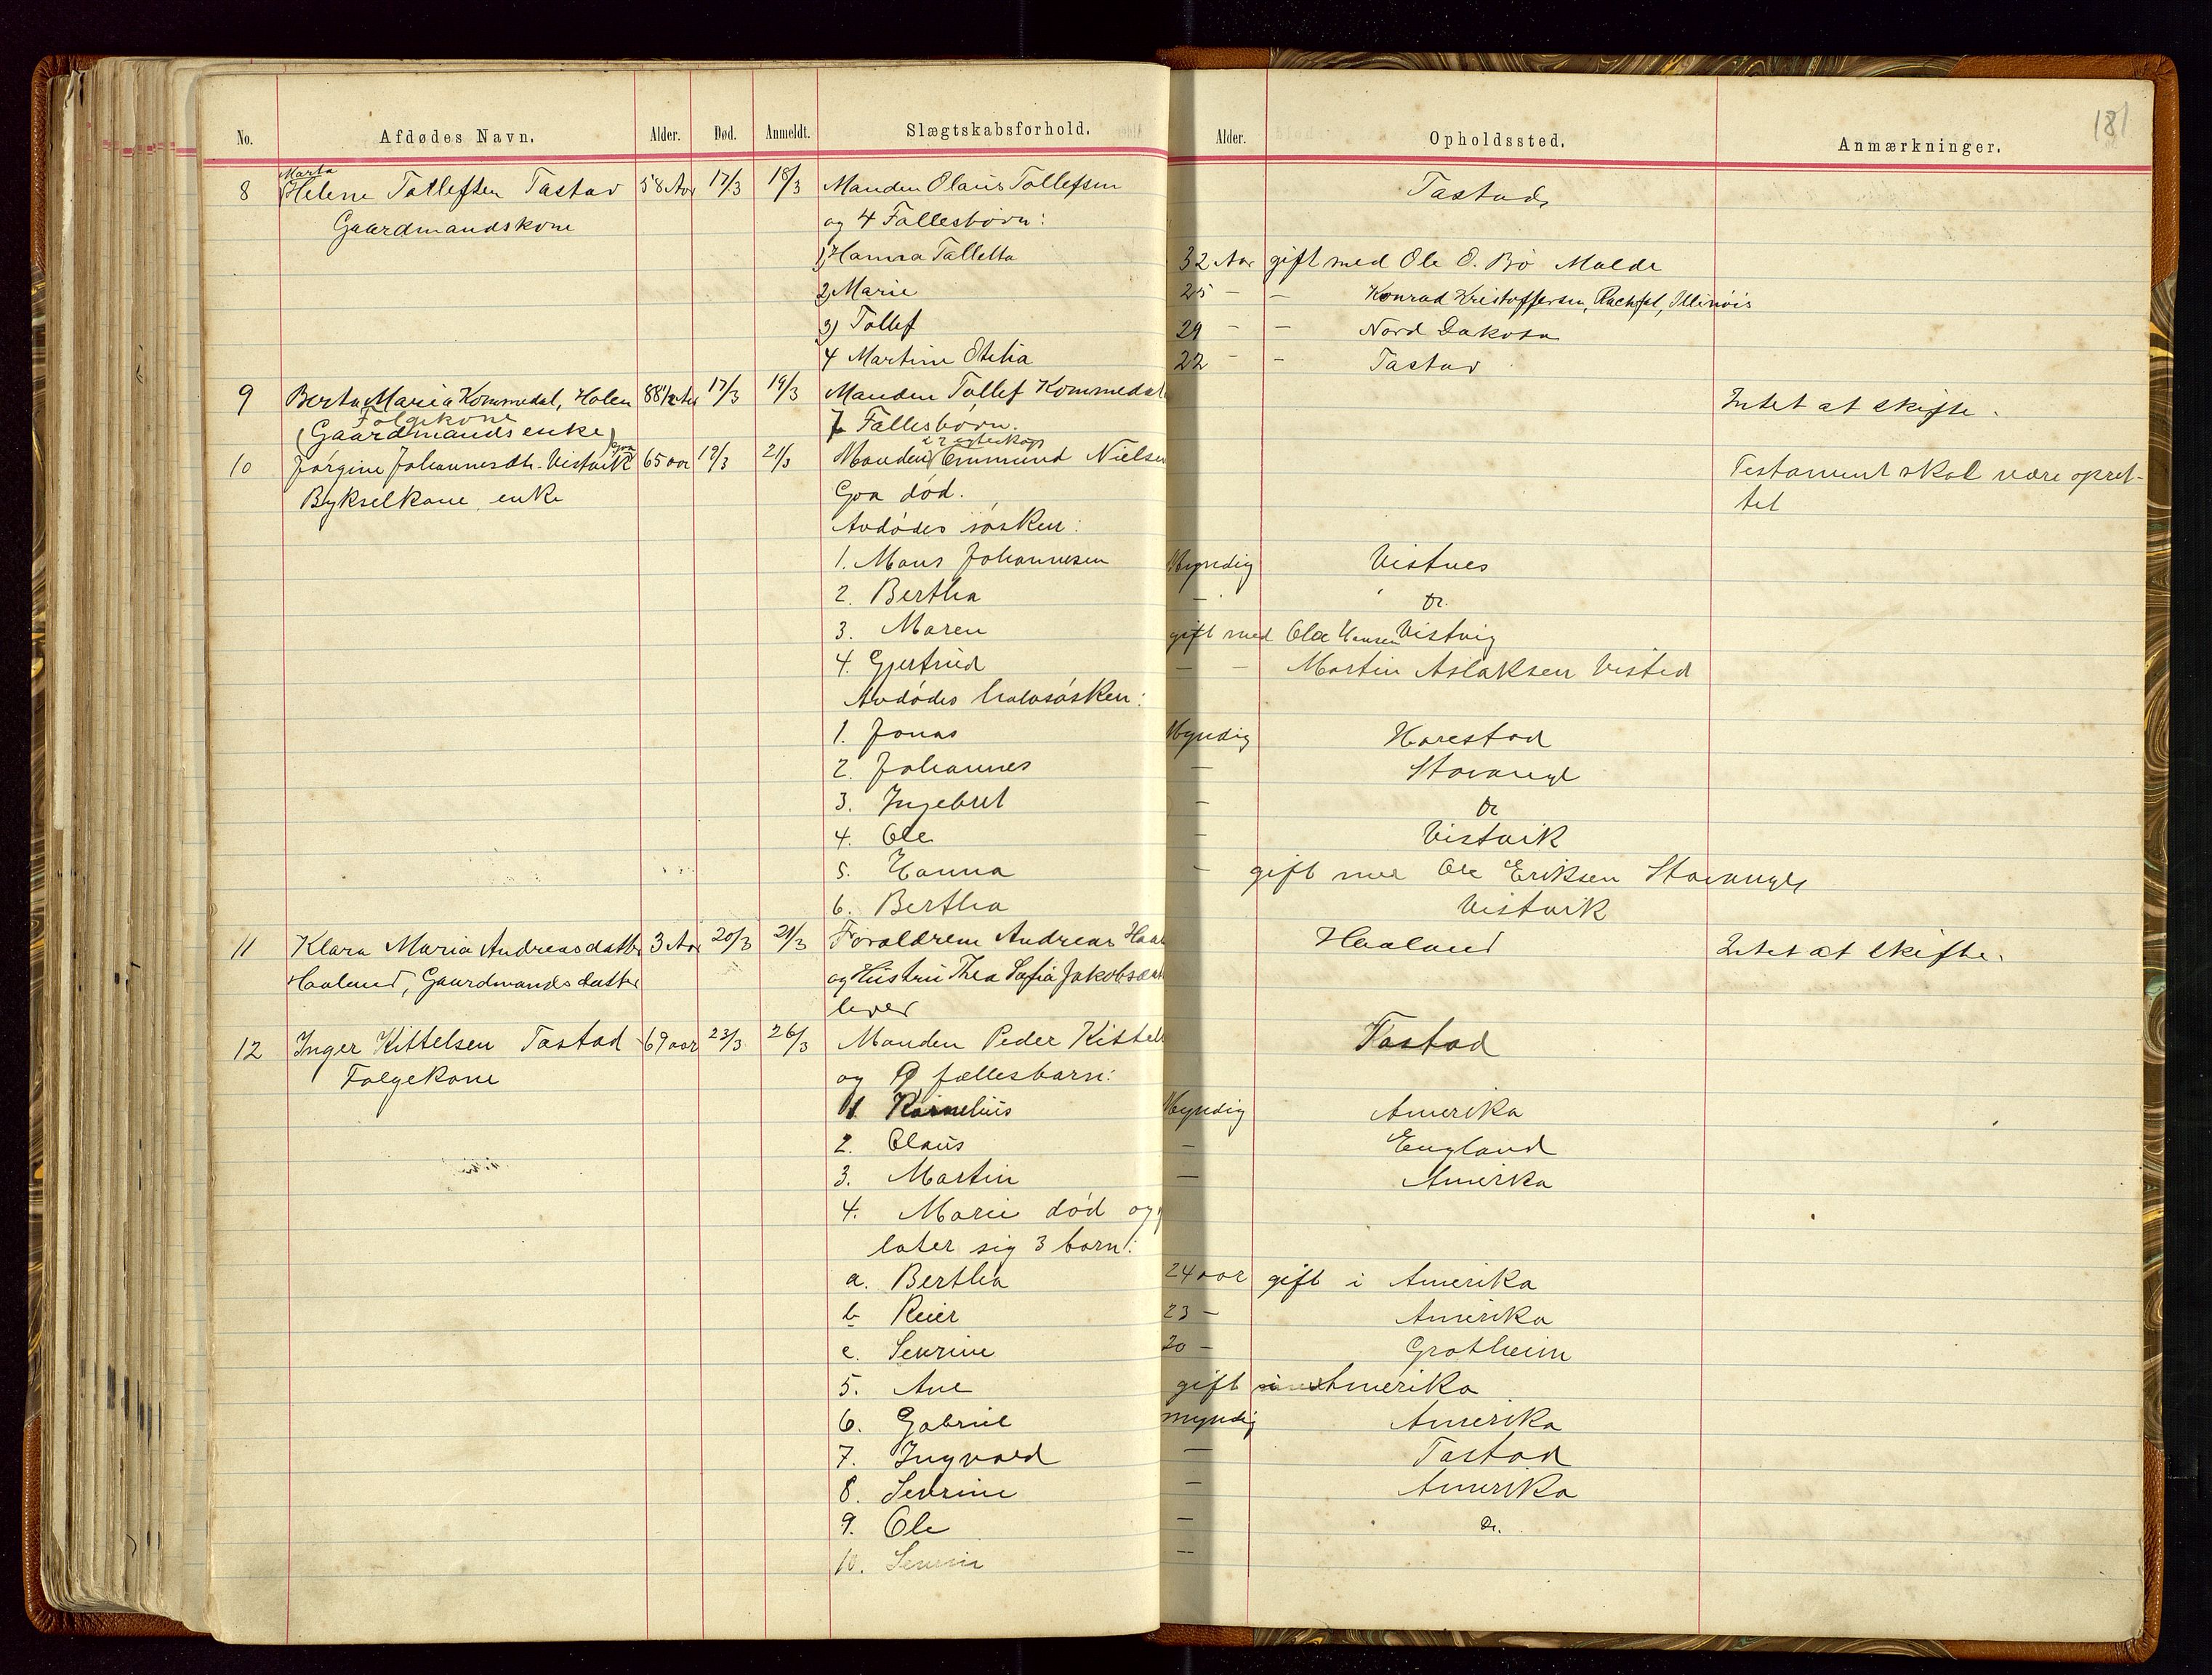 181
No. Afdødes Navn. Alder. Død. Anmeldt. Slægtskabsforhold. Alder. Opholdssted. Anmærkninger.
Marta
8 Helene Tollefsen Tastad 58 Aar 17/3 18/3 Manden Olaus Tollefsen Tastad
Gaardmandskone og 4 Fællesbørn:
1) Hanna Talletta 32 Aar gift med Ole O. Bø Molde
2) Marie 25 - - Konrad Kristoffersen, Illinois
3) Tollef 29 - - Nord Dakota
4 Martine Otelia 22 - - Tastad
9 Berta Maria Kommedal, Holen 88 1/2 Aar 17/3 19/3 Manden Tollef Kommedal Intet at skifte.
Folgekone
(Gaardmandsenke) 7 Fællesbørn.
10 Jørgine Johannesdtr. Vistvik 65 aar 19/3 21/3 Manden Emmund Nielsen Testament skal være opret-
Bykselkone, enke Goa død. tet
Avdødes søsken:
1. Mons Johannesen Myndig Vistnes
2. Bertha - Do.
3. Maren gift med Ola Hansen Vistvig
4. Gjertrud - - Martin Aslaksen Visted
Avdødes halvsøsken:
1. Jonas Myndig Harestad
2. Johannes - Stavanger
3. Ingebret - Do
4. Ole - Vistvik
5. Hanna - gift med Ole Eriksen Stavanger
6. Bertha Vistvik
11 Klara Maria Andreasdatter 3 Aar 20/3 21/3 Forældrene Andreas Haaland Intet at skifte.
Haaland, Gaardmandsdatter og Hustru Thea Sofia Jakobsen
lever
12 Inger Kittelsen Tastad 69 aar 23/3 26/3 Manden Peder Kittels Tastad
Folgekone og 9 fællesbarn:
1. Kornelius Myndig Amerika
2. Olaus - England
3. Martin - Amerika
4. Marie død og
later sig 3 barn:
a. Bertha 24 aar gift i Amerika
b Reier 23 - Amerika
c. Sevrine 20 - Grotheim
5. Ane gift i Amerika
6. Gabriel myndig Amerika
7. Ingvald - Tastad
8. Sevrine - Amerika
9. Ole - Do.
10. Sevrin -